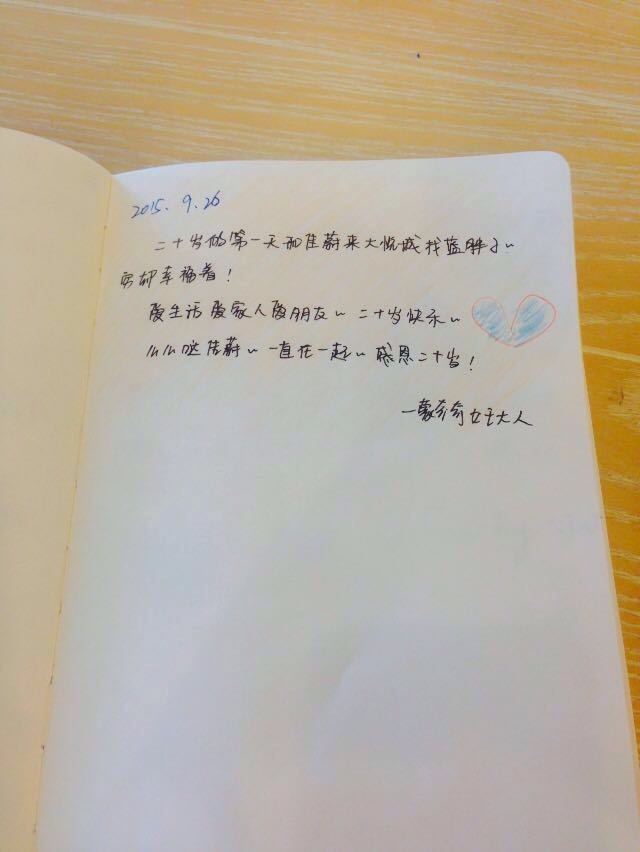 2015.9.26
二十岁的第一天和佳蔚来大悦城找蓝胖子~
安都幸福着!
爱生活爱家人爱朋友~ 二十岁快乐~
么么哒佳蔚~ 一直在一起~ 感恩二十岁!
—蒙奇奇女王大人